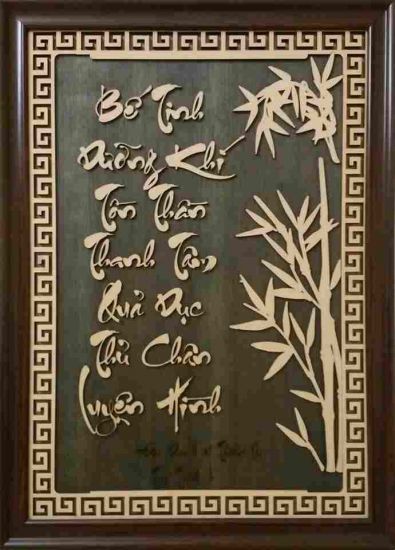 Bế Tinh
Dưỡng Khí
Tồn Thần
Thanh Tâm
Quả Dục
Thủ Chân
Luyện Hình